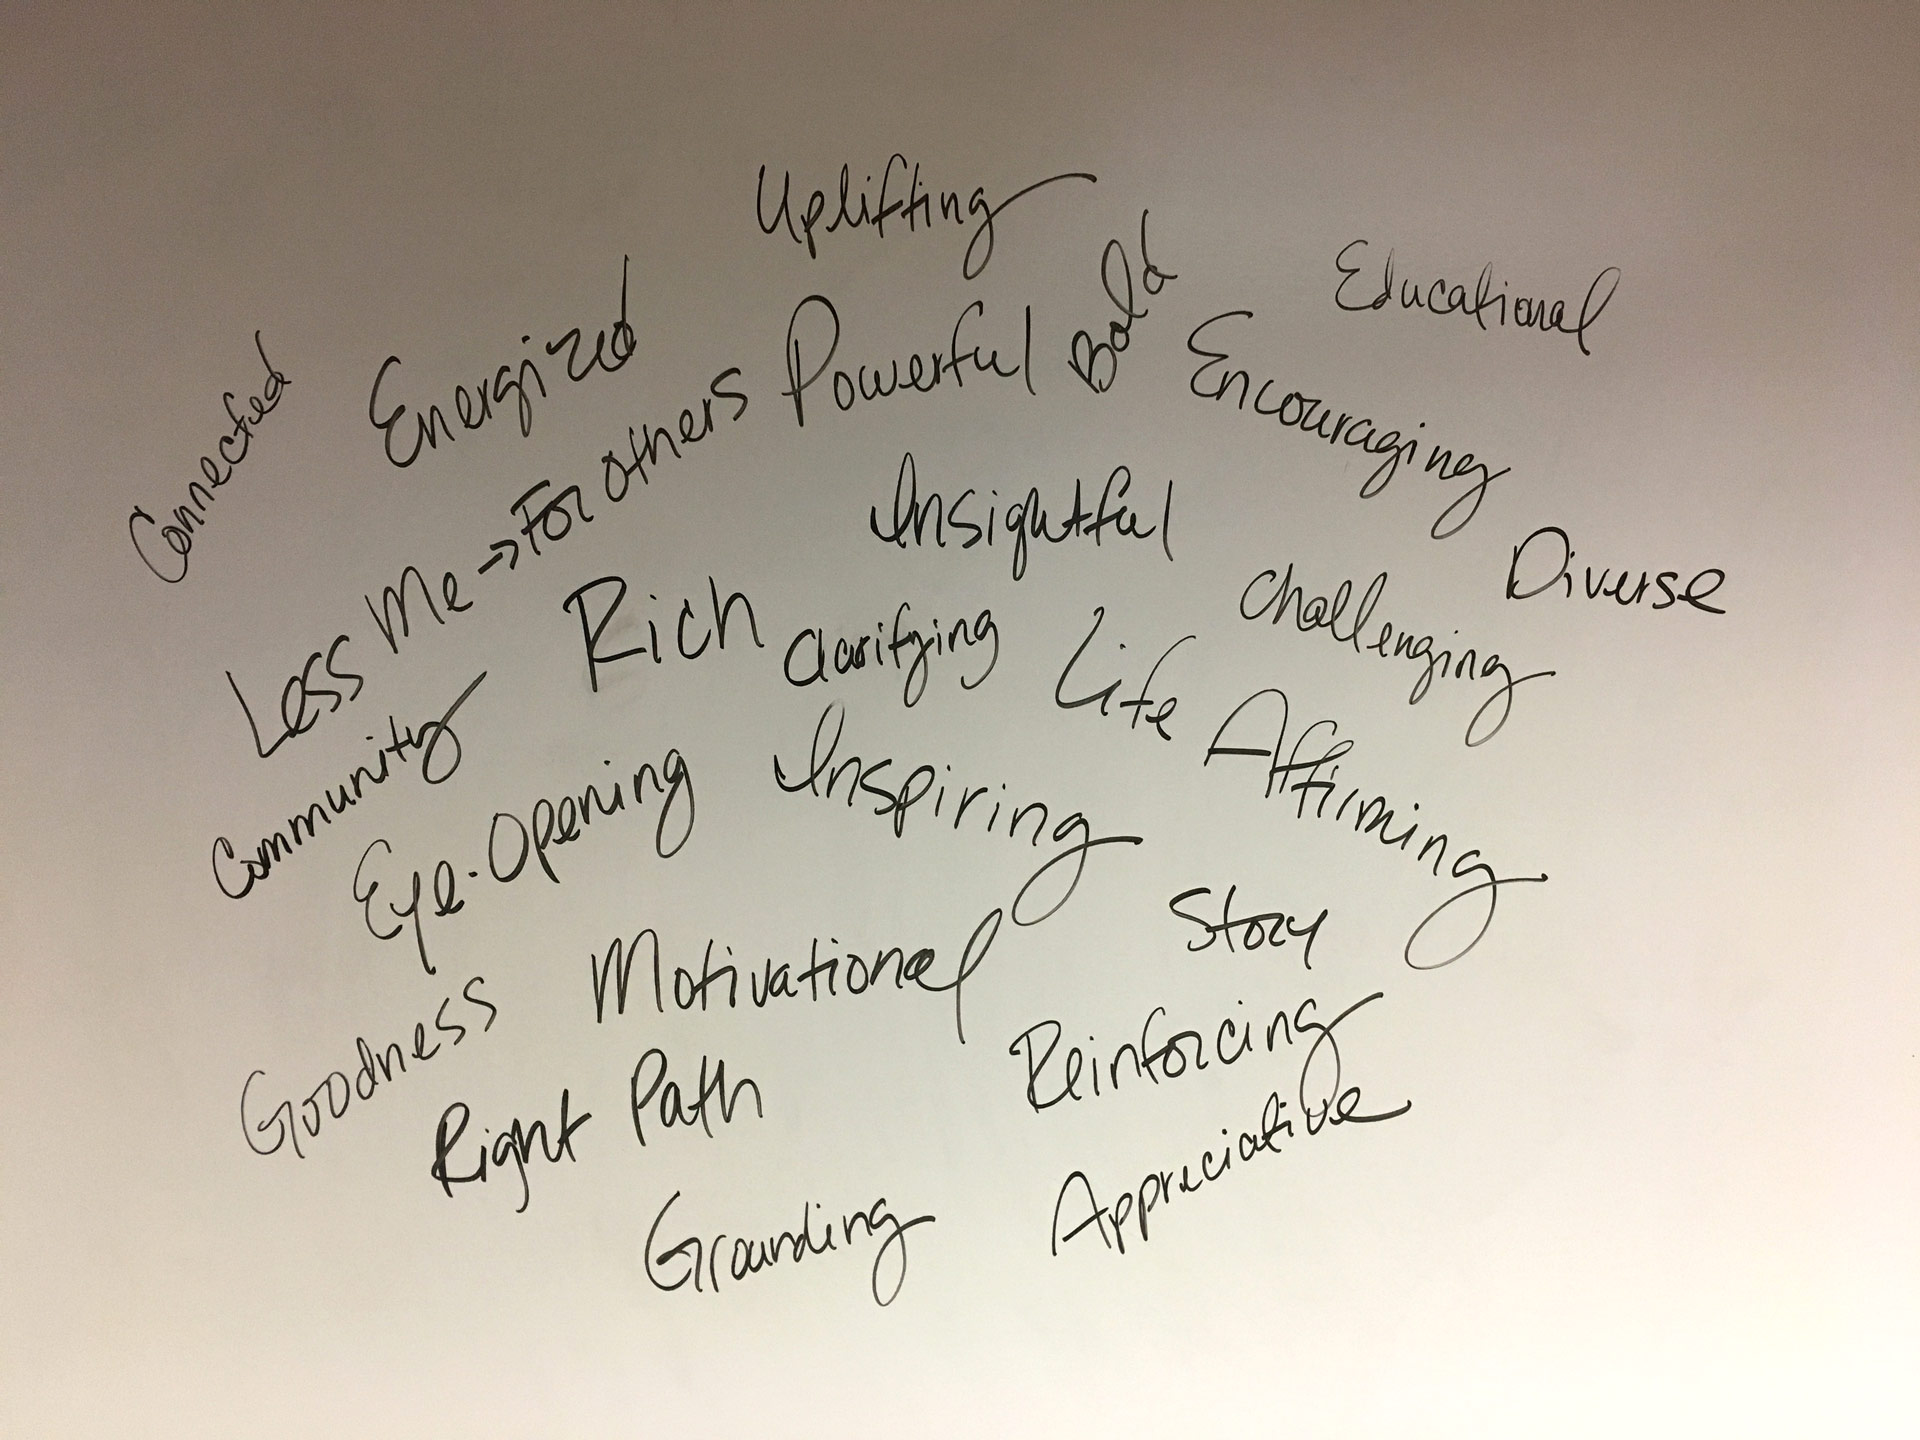 Uplifting
Educational
Connected
Energized
Powerful
Bold
Encouraging
Less Me → For others
Insightful
Diverse
Challenging
Rich
Clarifying
Life Affirming
Community
Eye-Opening
Inspiring
Story
Motivational
Goodness
Reinforcing
Right Path
Appreciative
Grounding